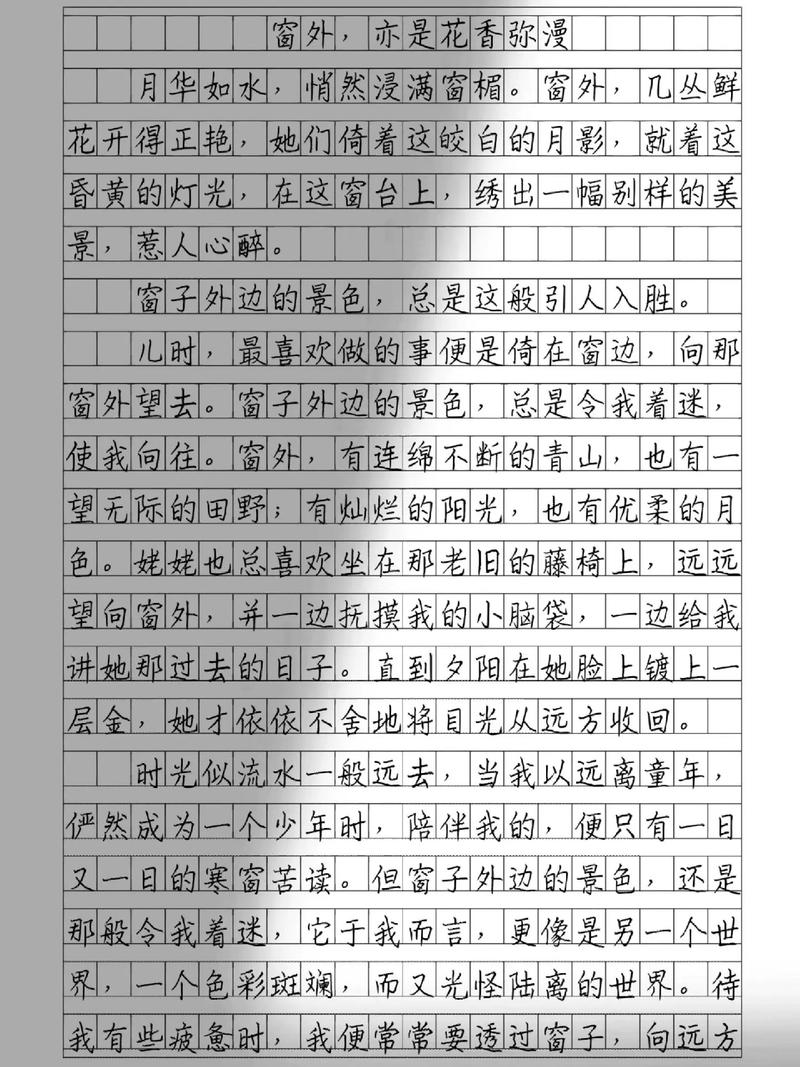 窗外，亦是花香弥漫
月华如水，悄然浸满窗楣。窗外，几丛鲜
花开得正艳，她们倚着这皎白的月影，就着这
昏黄的灯光，在这窗台上，绣出一幅别样的美
景，惹人心醉。
窗子外边的景色，总是这般引人入胜。
儿时，最喜欢做的事便是倚在窗边，向那
窗外望去。窗子外边的景色，总是令我着迷，
使我向往。窗外，有连绵不断的青山，也有一
望无际的田野；有灿烂的阳光，也有优柔的月
色。姥姥也总喜欢坐在那老旧的藤椅上，远远
望向窗外，并一边抚摸我的小脑袋，一边给我
讲她那过去的日子。直到夕阳在她脸上镀上一
层金，她才依依不舍地将目光从远方收回。
时光似流水一般远去，当我以远离童年，
俨然成为一个少年时，陪伴我的，便只有一日
又一日的寒窗苦读。但窗子外边的景色，还是
那般令我着迷，它于我而言，更像是另一个世
界，一个色彩斑斓，而又光怪陆离的世界。待
我有些疲惫时，我便常常要透过窗子，向远方